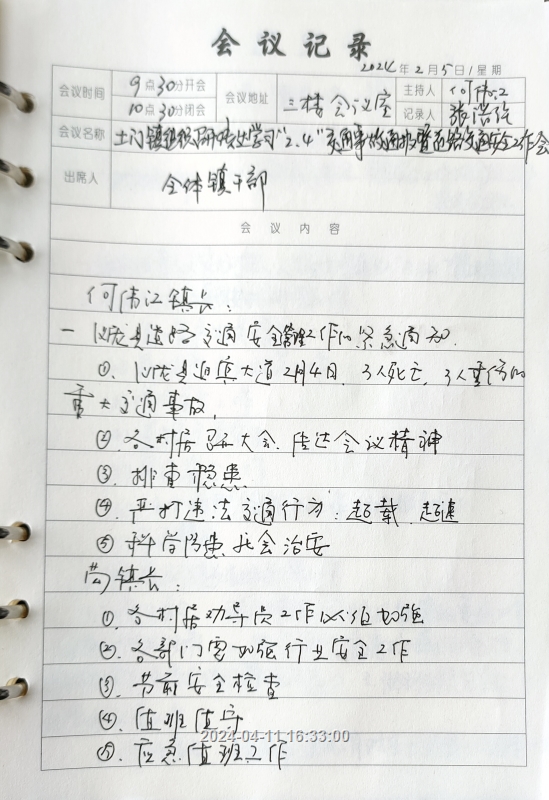 会议记录
2024年2月5日/星期
会议时间 9点30分开会 会议地址 三楼会议室 主持人 何伟江
10点30分闭会 记录人
会议名称 土门镇组织 学习"2.4"交通事故通报暨 道路交通安全工作会
出席人 全体镇干部
会议内容
何伟江镇长：
一 仪陇县道路交通安全管理工作的紧急通知.
①. 仪陇县迎宾大道2月4日, 3人死亡, 3人重伤的
重大交通事故,
②. 各村居召开大会, 传达会议精神
③. 排查隐患.
④. 严打违法交通行为: 超载, 超速
⑤ 科学 社会治安
镇长：
①. 各村居劝导员工作必须加强
②. 各部门要加强行业安全工作
③. 节前安全检查
④. 值班值守
⑤. 应急值班工作
2024-04-11 16:33:00